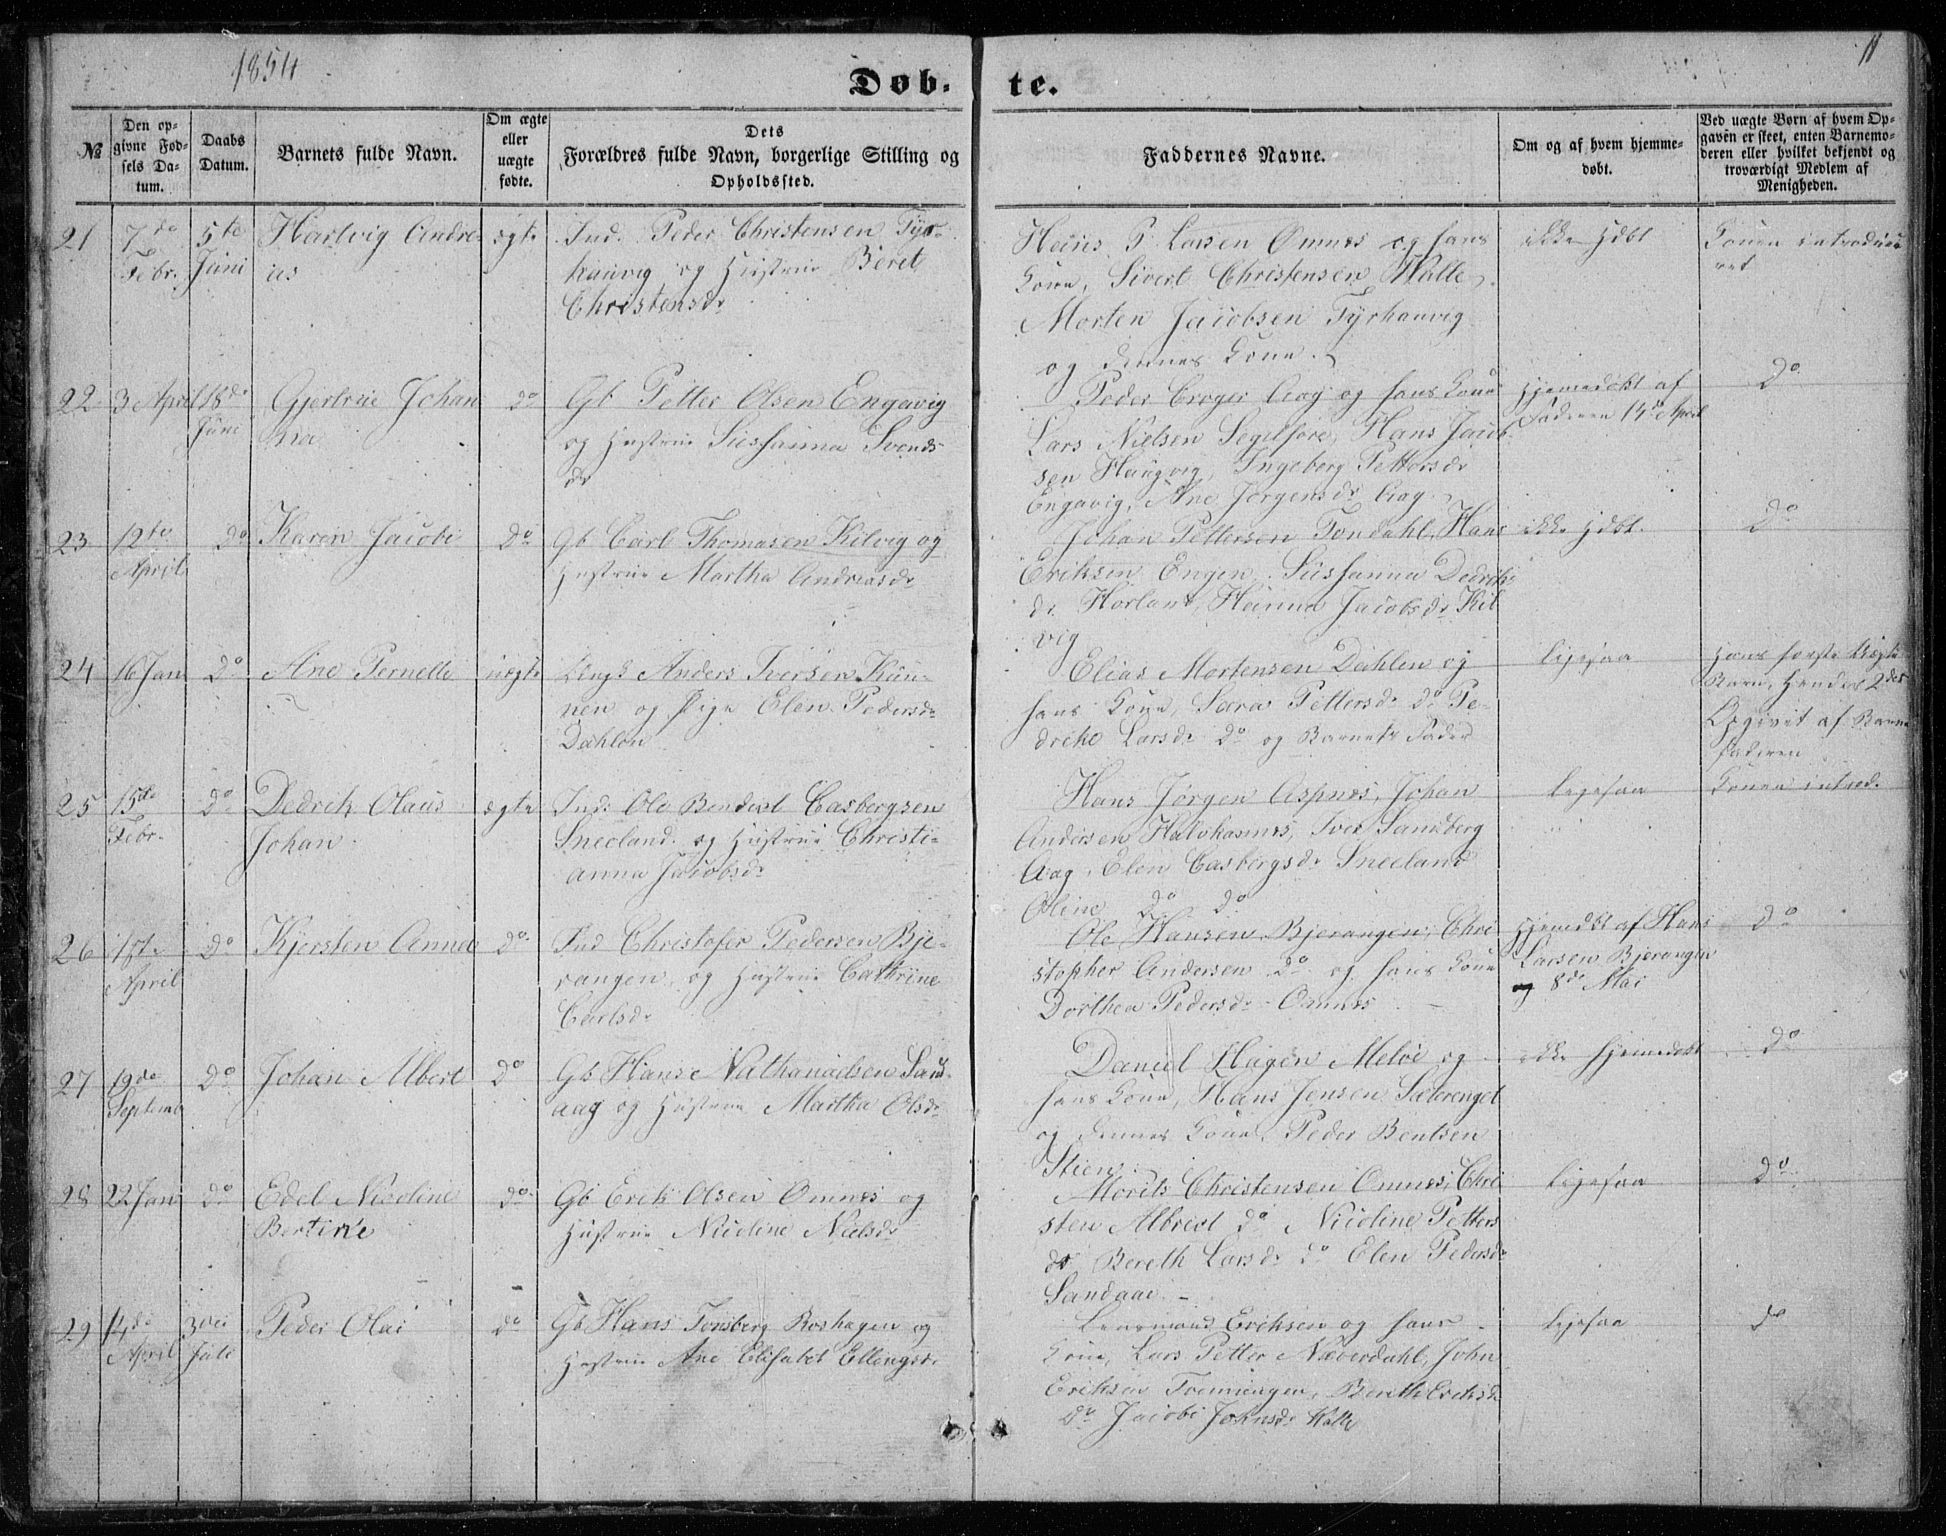 1854
11
Døb- te.
№
Den opgivne Fødsels Datum.
Daabs Datum.
Barnets fulde Navn.
Om ægte eller uægte fødte.
Dets Forældres fulde Navn, borgerlige Stilling og Opholdssted.
Faddernes Navne.
Om og af hvem hjemmedøbt.
Ved uægte Børn af hvem Opgaven er skeet, enten Barnemoderen eller hvilket bekjendt og troværdigt Medlem af Menigheden.
21
7de Febr.
5te Juni
Hartvig Andreas
ægte
Ind. Peder Christensen Tyrhaúvig og Hustrue Beret Christensdr
P. Larsen Omnes og hans Kone, Sivert Christensen Halle,
Morten Jacobsen Tyrhaúvig
og dennes Kone.
ikke hdbt
Konen introduceret
22
3 April
18de Juni
Gjertrue Johanna
do
Gb Petter Olsen Engavig
og Hustrue Susanna Svendsdr
Peder Aag og hans Kone
Lars Nielsen Segelfore, Hans Jacobsen
Haúgvig, Ingeborg Pettersdr
Engavig, Ane Jørgensdr Aag.
Hjemedøbt af Faderen 14de April
do
23
12te April
do
Karen Jacobi
do
Gb Carl Thomasen Kilvig og
Hustrue Martha Andreasdr
Johan Pettersen Tondahl, Hans
Eriksen Engen, Susanna Dedriksdr
Horland, Hanna Jacobsdr Kilvig
ikke hdbt.
do
24
16 Jan
do
Ane Pernelle
uægte
Ungk Anders Iversen Kúnnen
og Pige Elen Pedersdr
Dahlen
Elias Mortensen Dahlen og
hans Kone, Sara Pettersdr do Pedrike
Larsdr do og Barnets Fader
ligesaa
Hans første Uægte
Barn, Hendes 2det
Opgivet af Barnefaderen
25
15de Febr.
do
Dedrik Olaus
Johan
ægte
Ind: Ole Bendixt Casbergsen
Sneeland og Hustrue Christianna
Jacobsdr
Hans Jørgen Aspnes, Johan
Andersen Halvhannes, Iver Sandberg
Aag, Elen Casbergsdr Sneeland
Oline do do
ligesaa
Konen introd.
26
1ste April
do
Kjersten Anna
do
Ind Christofer Pedersen Bjerangen,
og Hustrue Cathrine
Carlsdr
Ole Hansen Bjerangen, Christopher
Andersen do og hans Kone
Dorthea Pedersdr Omnes
Hjemedbt af Hans
Larsen Bjerangen
8de Mai
do
27
19de Septembr
do
Johan Albert
do
Gb Hans Nathanaelsen Sandaag
og Hustrue Martha Olsdr
Daniel Hagen Meløe og
hans Kone, Hans Jensen Sæterenget
og dennes Kone, Peder Bentsen
Stien
ikke hjemedøbt
do
28
22 Jan
do
Edel Nicoline
Bertine
do
Gb Erik Olsen Omnes og
Hustrue Nicoline Nielsdr
Morits Christensen Omnes, Christen
Albrect do Nicoline Pettersdr
Bereth Larsdr do Elen Pedersdr
Sandaae
ligesaa
do
29
14de April
3die Juli
Peder Olai
do
Gb Hans Tonsberg Roshagen og
Hustrue Ane Elisabet Ellingsdr
Lensmand Eriksen og hans
Kone, Lars Petter Næverdahl, John
Eriksen Tvenningen, Bereth Eriksdr
do Jacobi Johnsdr Halle
ligesaa
do